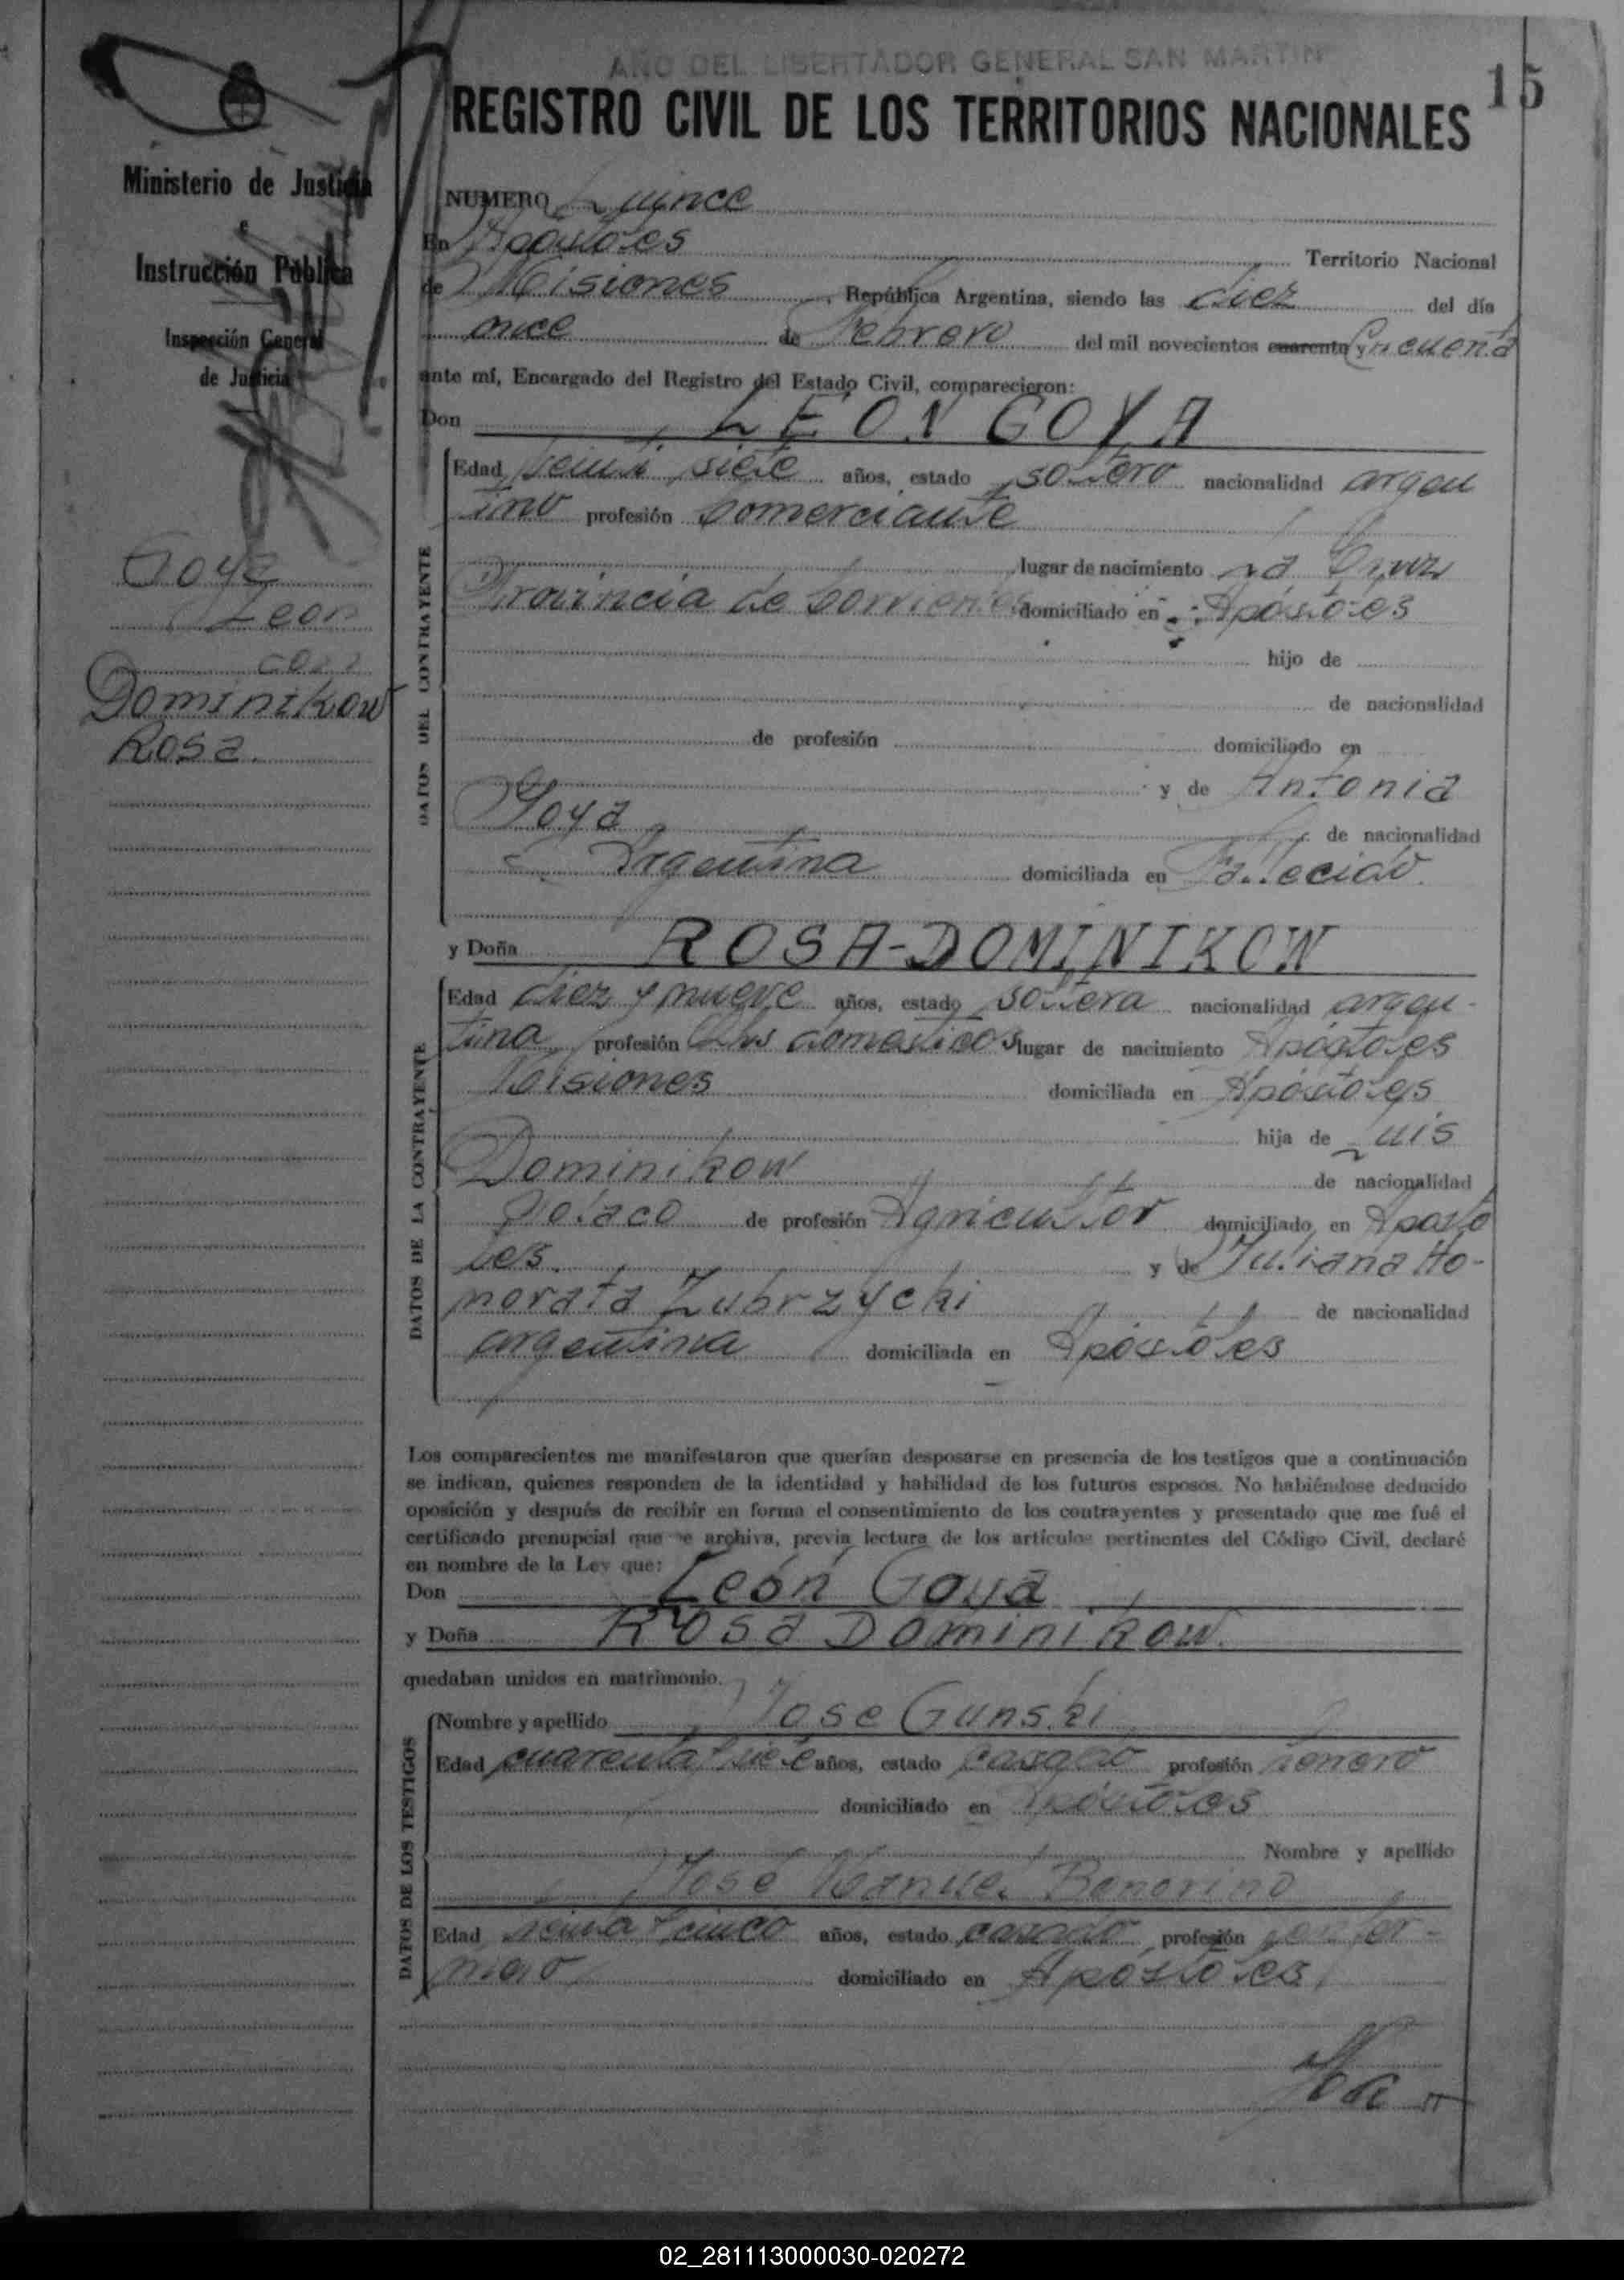 AÑO DEL LIBERTADOR GENERAL SAN MARTIN
15
REGISTRO CIVIL DE LOS TERRITORIOS NACIONALES
Ministerio de Justicia
e
Instrucción Pública
Inspección General
de Justicia
Goya
Leon
con
Dominikow
Rosa.
NUMERO Quince
En Apóstoles Territorio Nacional
de Misiones, República Argentina, siendo las diez del día
once de Febrero del mil novecientos cuarenta y Cincuenta
ante mí, Encargado del Registro del Estado Civil, comparecieron:
Don LEON GOYA
DATOS DEL CONTRAYENTE
Edad veinti siete años, estado soltero nacionalidad argen
tino profesión comerciante
lugar de nacimiento La Cruz
Provincia de Corrientes domiciliado en Apóstoles
hijo de
de nacionalidad
de profesión domiciliado en
y de Antonia
Goya de nacionalidad
Argentina domiciliada en Fallecida
y Doña ROSA-DOMINIKOW
DATOS DE LA CONTRAYENTE
Edad diez y nueve años, estado soltera nacionalidad argen-
tina profesión domesticos lugar de nacimiento Apóstoles
Misiones domiciliada en Apóstoles
hija de Luis
Dominikow de nacionalidad
Polaco de profesión Agricultor domiciliado en Aposto
les. y de Juliana Ho-
norata Zubrzycki de nacionalidad
argentina domiciliada en Apóstoles
Los comparecientes me manifestaron que querían desposarse en presencia de los testigos que a continuación
se indican, quienes responden de la identidad y habilidad de los futuros esposos. No habiéndose deducido
oposición y después de recibir en forma el consentimiento de los contrayentes y presentado que me fué el
certificado prenupcial que se archiva, previa lectura de los artículos pertinentes del Código Civil, declaré
en nombre de la Ley que:
Don León Goya
y Doña Rosa Dominikow.
quedaban unidos en matrimonio.
DATOS DE LOS TESTIGOS
Nombre y apellido Jose Gunski
Edad cuarenta y siete años, estado casado profesión
domiciliado en Apóstoles
Nombre y apellido
José Manuel Benorino
Edad treinta y cinco años, estado casado profesión enfer-
mero domiciliado en Apóstoles
02_281113000030-020272